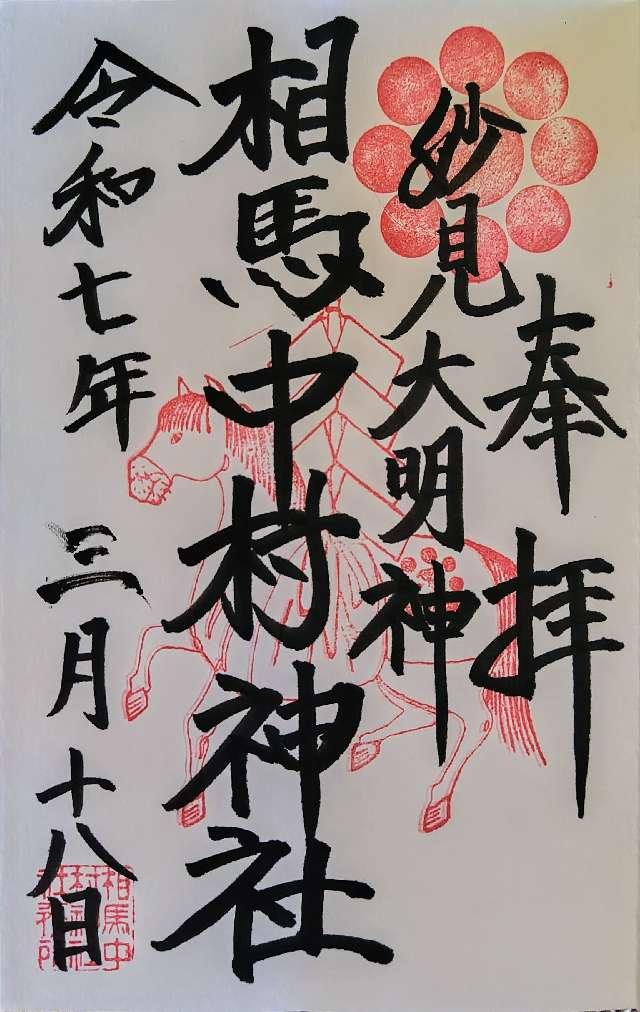 奉拝
妙見大明神
相馬中村神社
令和七年 三月十八日
相馬中
村神社
社務所